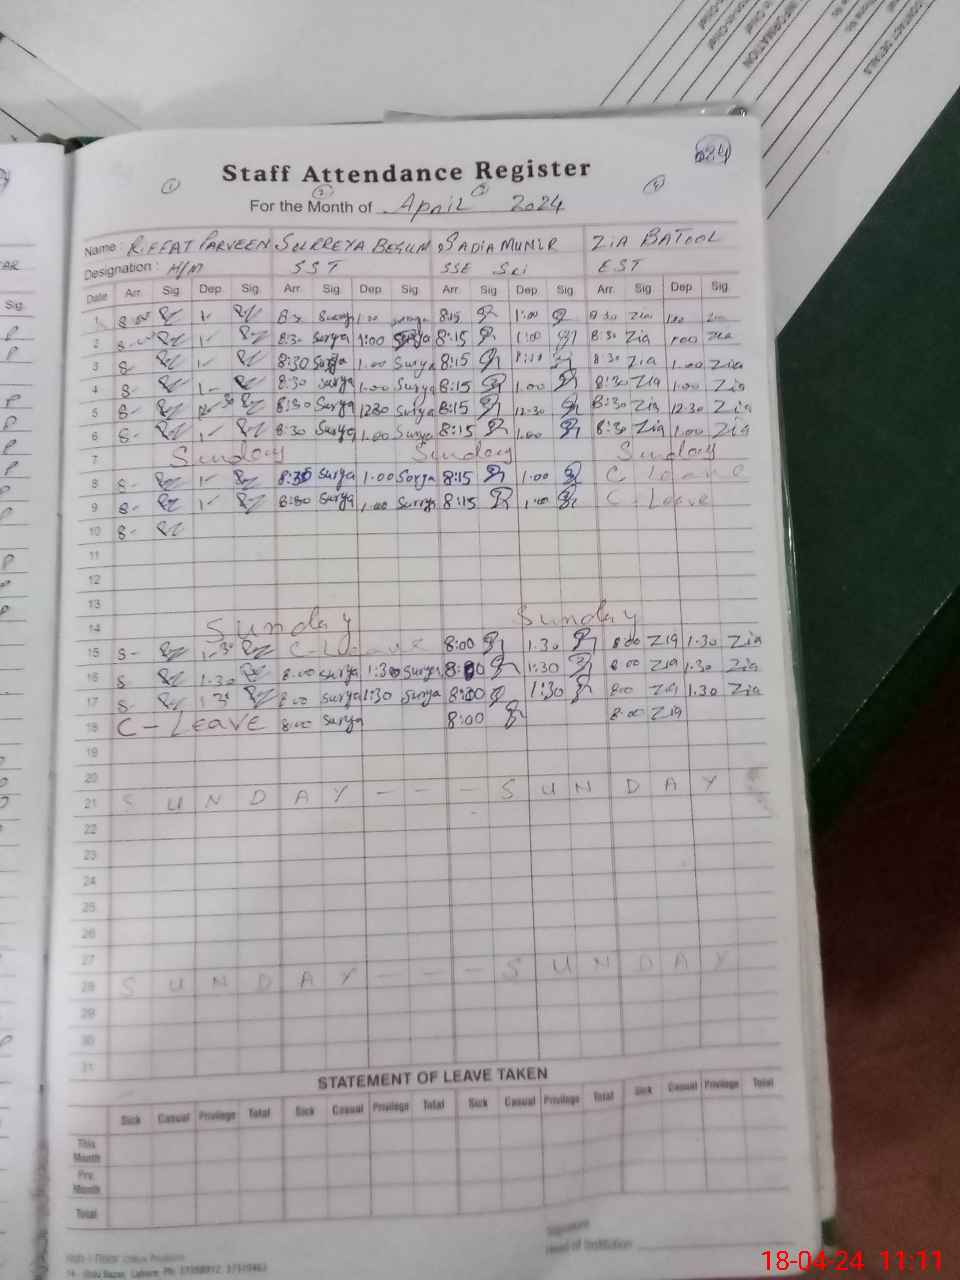 CONTACT DETAILS
INFORMATION
624
Staff Attendance Register
1 2 3 4
For the Month of April 2024
Name : RIFFAT PARVEEN SURREYA BEGUM SADIA MUNIR ZIA BATOOL
Designation : H/M SST SSE Sci EST
Date Arr. Sig. Dep. Sig. Arr. Sig. Dep. Sig. Arr. Sig. Dep. Sig. Arr. Sig. Dep. Sig.
1 8-00 1- 8:15 1:00 8:30 Zia 1.00
2 8-00 1- 8:30 Surya 1:00 Surya 8:15 1:00 8:30 Zia 1.00 Zia
3 8- 1- 8:30 Surya 1.00 Surya 8:15 8:30 Zia 1.00 Zia
4 8- 1- 8:30 Surya 1.00 Surya 8:15 1.00 8:30 Zia 1.00 Zia
5 8- 8:30 Surya 1230 Surya 8:15 12.30 8:30 Zia 12.30 Zia
6 8- 1- 8:30 Surya 1.00 Surya 8:15 1.00 8:30 Zia 1.00 Zia
7 Sunday Sunday Sunday
8 8- 1- 8:30 Surya 1.00 Surya 8:15 1.00 C Leave
9 8- 1- 8:30 Surya 1.00 Surya 8:15 1.00 C - Leave
10 8-
11
12
13
14 Sunday Sunday
15 8- 1-30 C-Leave 8:00 1.30 8:00 Zia 1.30 Zia
16 8- 1.30 8.00 Surya 1:30 Surya 8:00 1:30 8:00 Zia 1.30 Zia
17 8- 1.30 8.00 Surya 1:30 Surya 8:00 1:30 8:00 Zia 1.30 Zia
18 C - LEAVE 8:00 Surya 8:00 8:00 Zia
19
20
21 S U N D A Y - - - S U N D A Y
22
23
24
25
26
27
28 S U N D A Y - - - S U N D A Y
29
30
31
STATEMENT OF LEAVE TAKEN
Sick Casual Privilege Total Sick Casual Privilege Total Sick Casual Privilege Total Sick Casual Privilege Total
This Month
Prv. Month
Total
Signature
Head of Institution
14 - Urdu Bazar, Lahore. Ph:
18-04-24 11:11